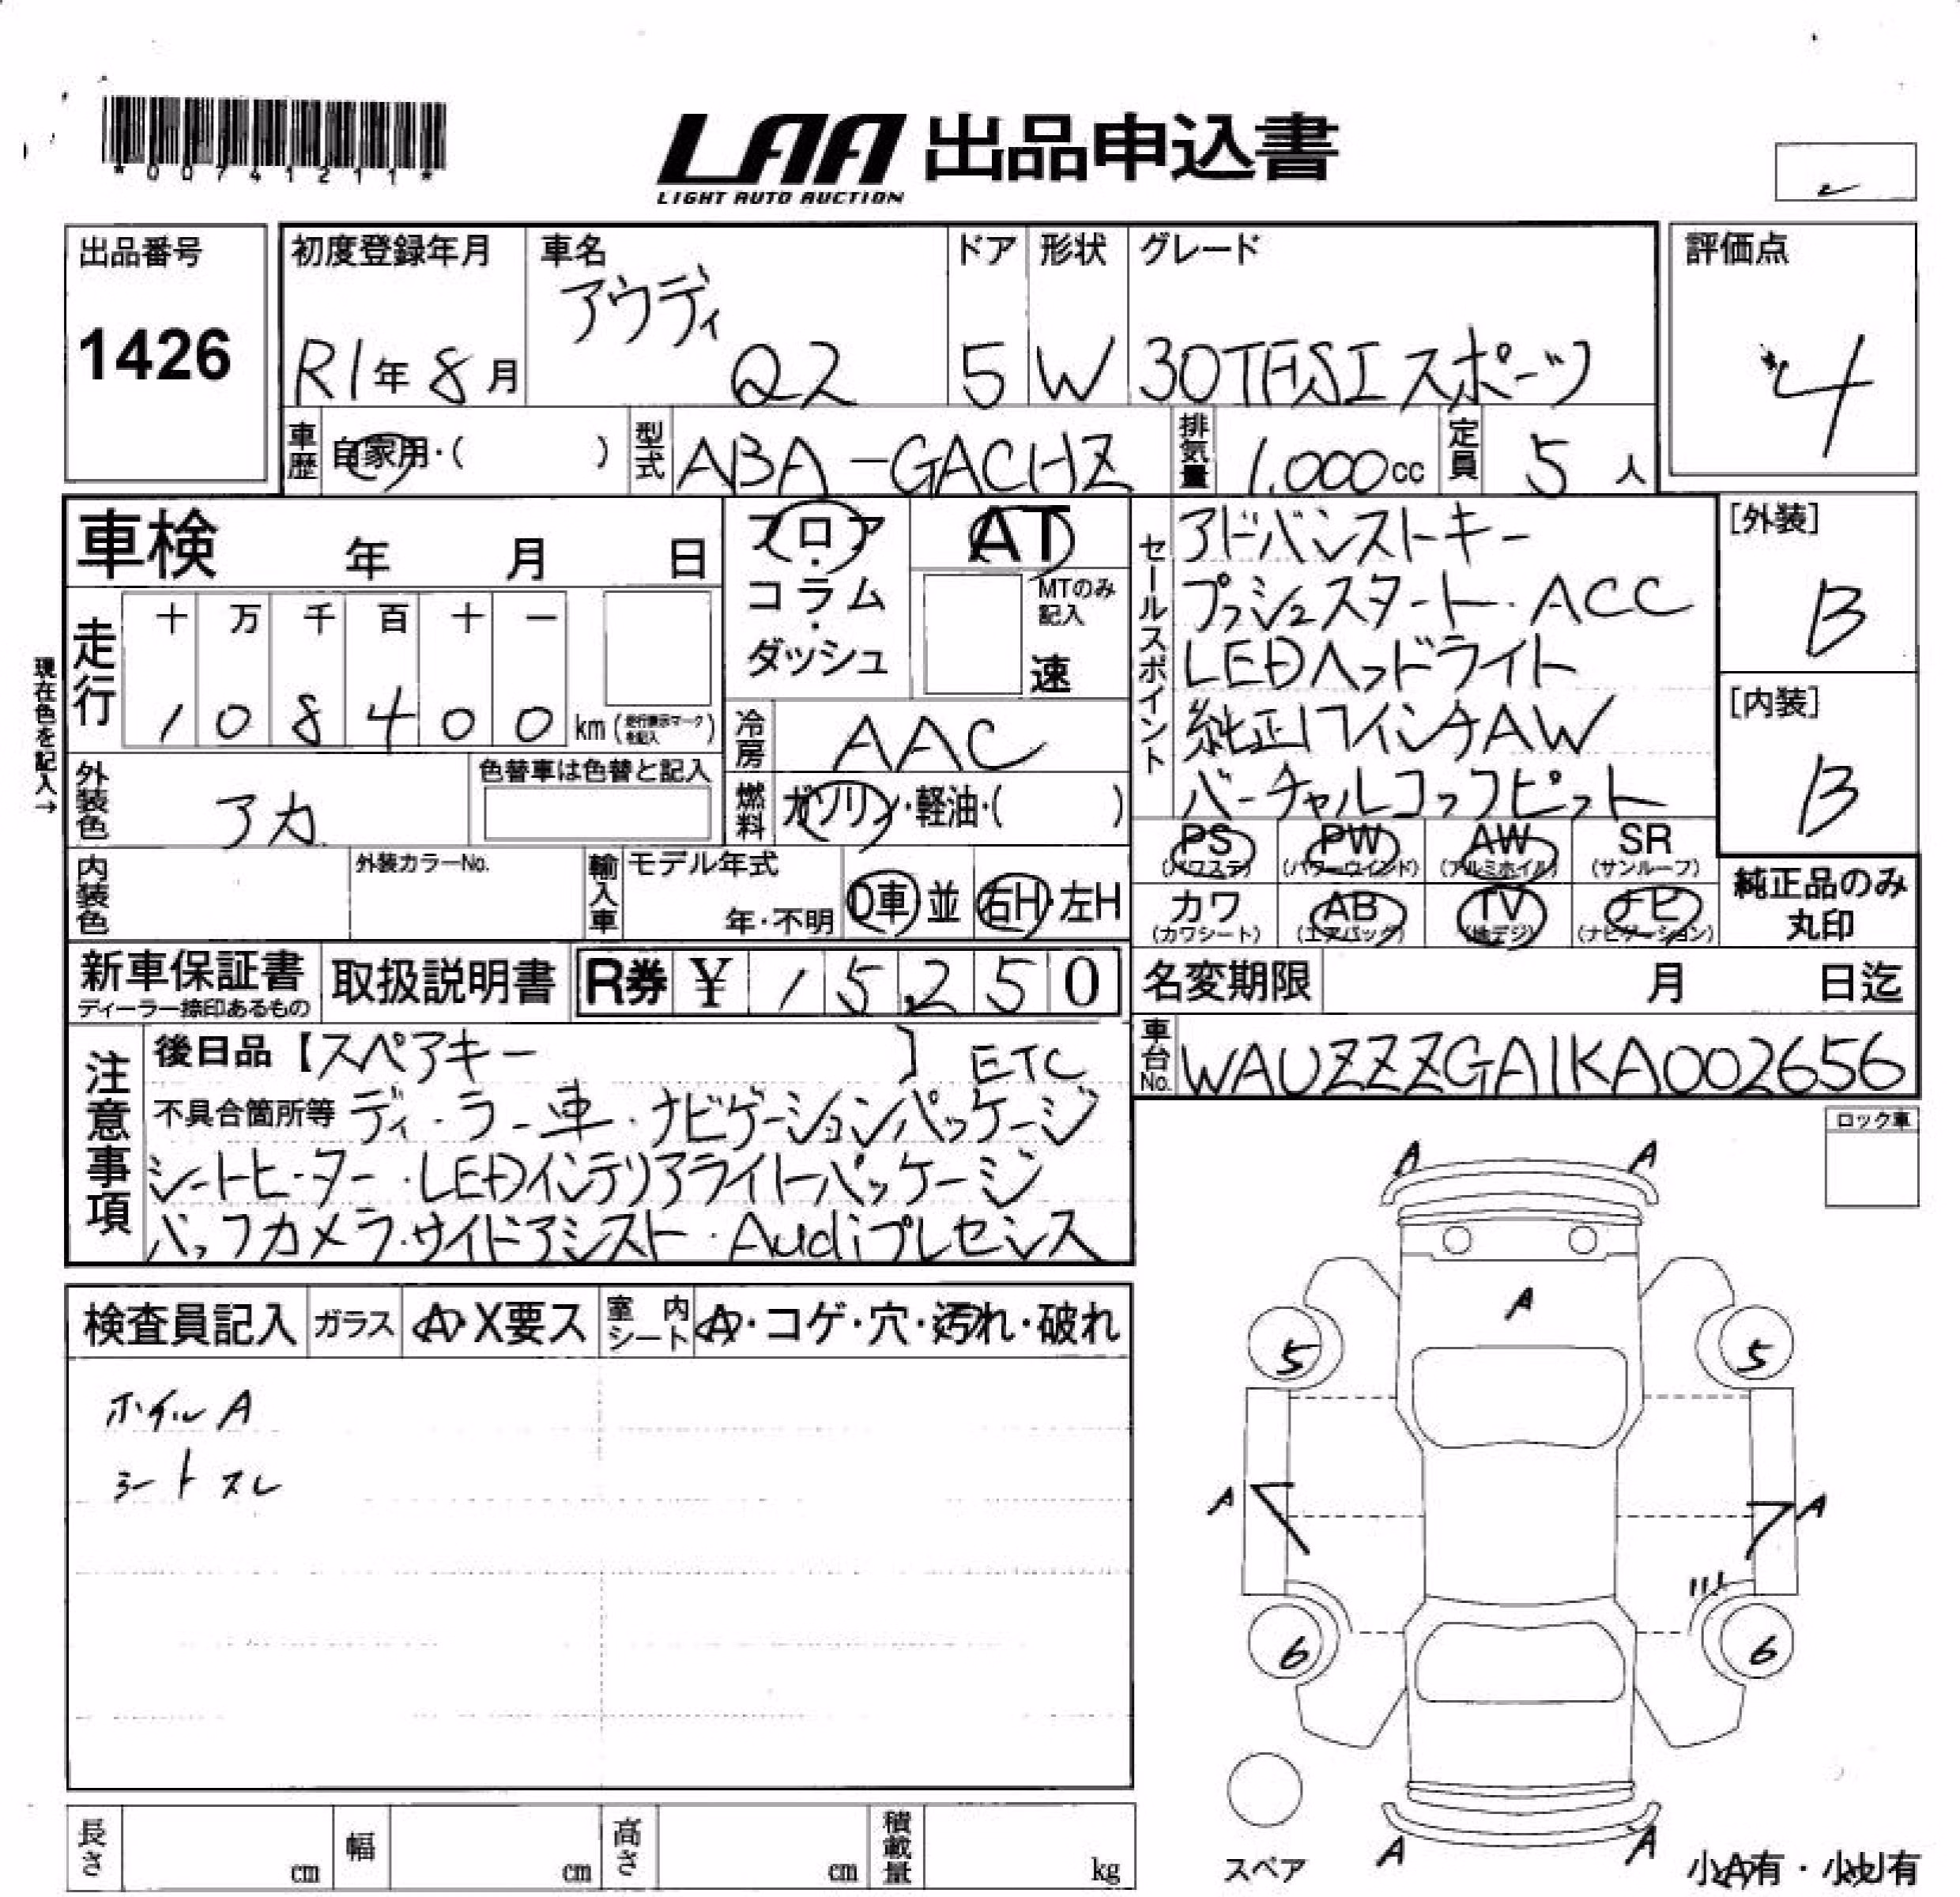 *00741211*
LAA 出品申込書
LIGHT AUTO AUCTION
出品番号
1426
初度登録年月
R1年8月
車名
アウディ
Q2
ドア
5
形状
W
グレード
30TFSIスポーツ
評価点
4
車歴
自家用・( )
型式
ABA-GACHZ
排気量
1.000cc
定員
5人
車検 年 月 日
フロア・
コラム・
ダッシュ
AT
MTのみ記入
速
セールスポイント
アドバンストキー
プッシュスタート・ACC
LEDヘッドライト
純正17インチAW
バーチャルコックピット
[外装]
B
[内装]
B
現在色を記入→
走行
十 万 千 百 十 一
1 0 8 4 0 0 km (走行表示マークを記入)
冷房
AAC
外装色
アカ
色替車は色替と記入
燃料
ガソリン・軽油・( )
PS AW PW SR
(パワステ) (パワーウインド) (アルミホイル) (サンルーフ)
カワ AB TV ナビ
(カワシート) (エアバック) (地デジ) (ナビゲーション)
純正品のみ
丸印
内装色
外装カラーNo.
輸入車
モデル年式
年・不明
D車 並 右H・左H
新車保証書
ディーラー捺印あるもの
取扱説明書
R券 ¥ 15,250
名変期限 月 日迄
車台No.
WAUZZZGA1KA002656
注意事項
後日品【スペアキー 】 ETC
不具合箇所等 ディーラー車・ナビゲーションパッケージ
シートヒーター・LEDインテリアライトパッケージ
バックカメラ・サイドアシスト・Audiプレセンス
ロック車
検査員記入
ガラス
A・X要ス
室内シート
A・コゲ・穴・汚れ・破れ
ホイルA
シートスレ
A A
A
5 5
A A
6 6
A A
スペア
小A有・小U有
長さ cm
幅 cm
高さ cm
積載量 kg